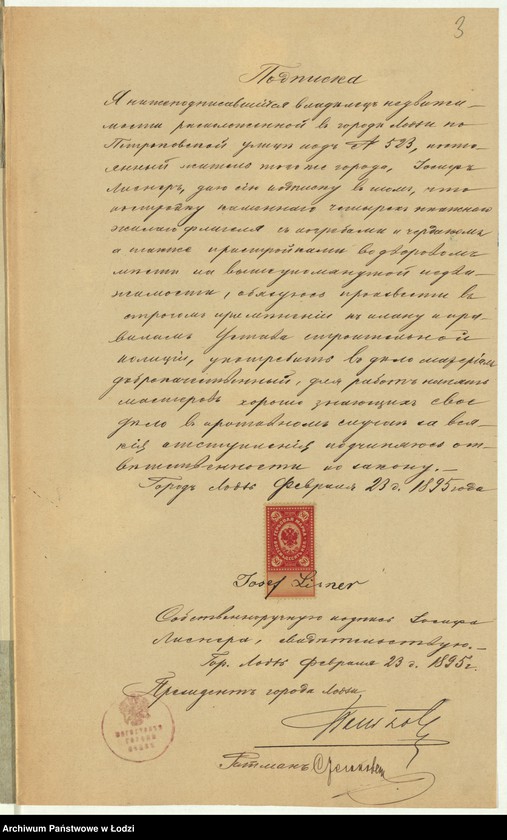 3
Подписка
Я нижеподписавшійся владѣлецъ недвижи-
мости расположенной въ городѣ Лодзи по
Петроковской улицѣ подъ № 523, посто-
янный житель того же города, Іосифъ
Лиснеръ, даю сію подписку въ томъ, что
постройку каменнаго четырехъ этажнаго
жилаго флигеля съ погребами и чердакомъ
а также пристройками въ дворовомъ
мѣстѣ на вышеупомянутой недви-
жимости, обязуюсь произвести въ
строгомъ примѣненіи къ плану и пра-
виламъ Устава строительной
полиціи, употребить въ дѣло матеріалъ
доброкачественный, для работъ нанять
мастеровъ хорошо знающихъ свое
дѣло въ противномъ случаѣ за вся-
кія отступленія подчиняюсь от-
вѣтственности по закону.-
Городъ Лодзь Февраля 23 д. 1895 года
Josef Lisner
Собственноручную подпись Іосифа
Лиснера, свидѣтельствую.-
Гор. Лодзь Февраля 23 д. 1895 г.
Президентъ города Лодзи
Пеньков
Гетманъ
Archiwum Państwowe w Łodzi